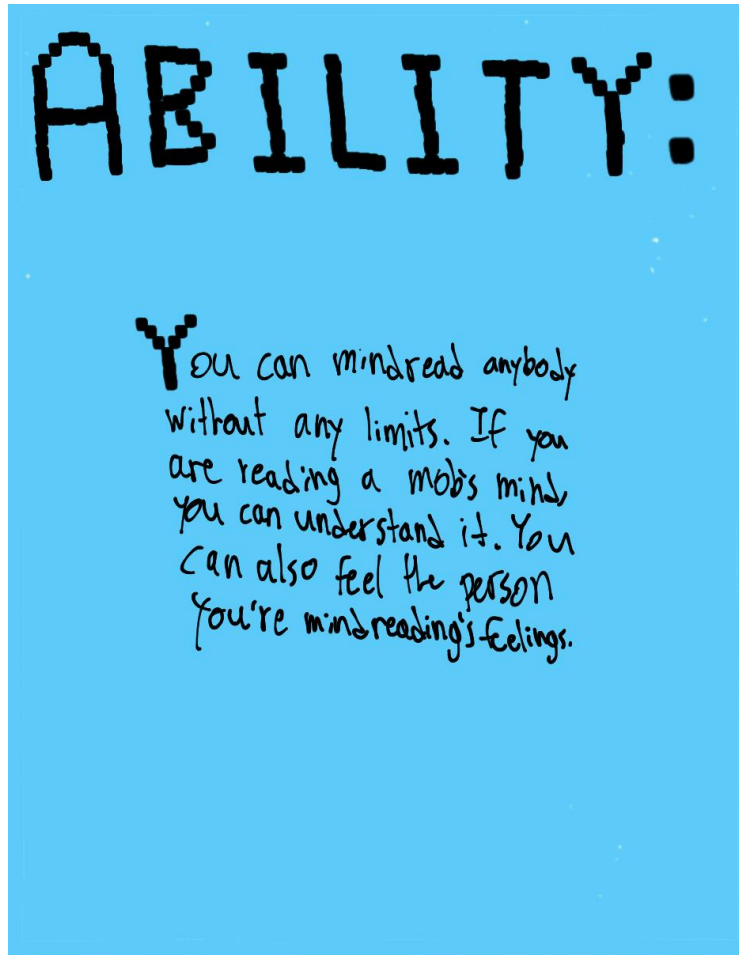 ABILITY:
You can mindread anybody
without any limits. If you
are reading a mob's mind,
you can understand it. You
can also feel the person
you're mindreading's feelings.